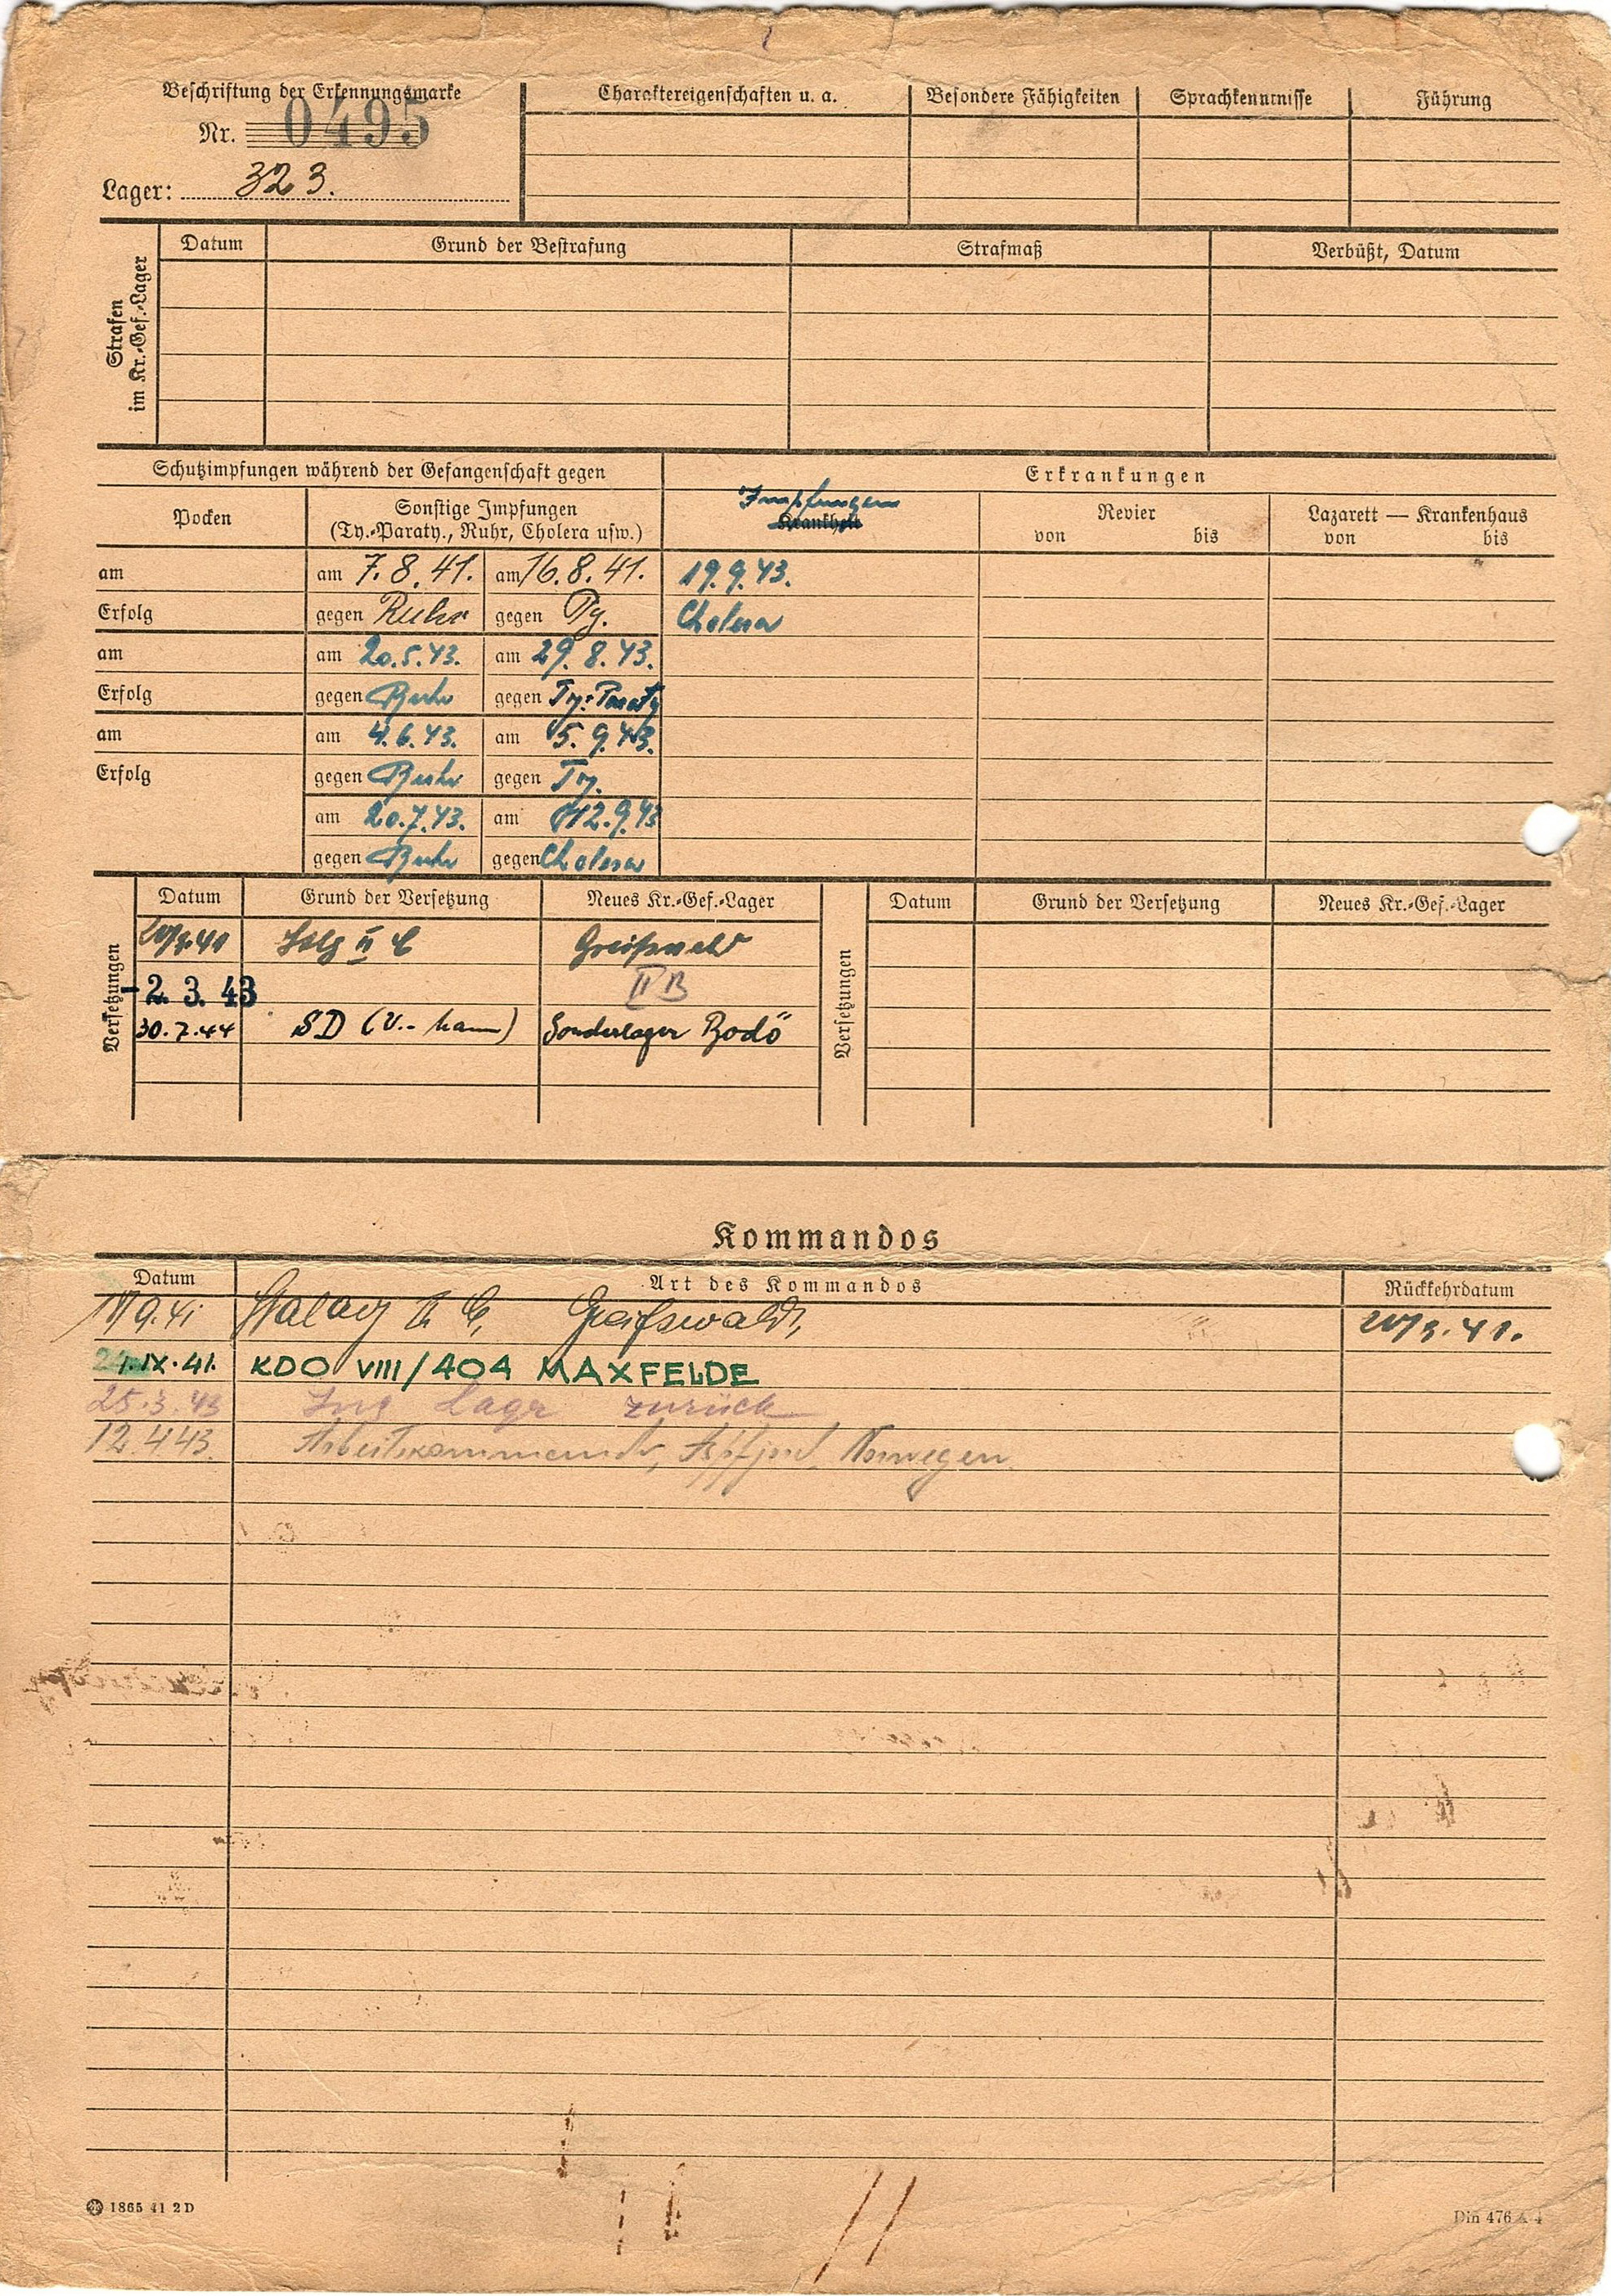 Beschriftung der Erkennungsmarke
Nr. 0495
Lager: 323.
Charaktereigenschaften u. a.
Besondere Fähigkeiten
Sprachkenntnisse
Führung
Strafen
im Kr.-Gef.-Lager
Datum
Grund der Bestrafung
Strafmaß
Verbüßt, Datum
Schutzimpfungen während der Gefangenschaft gegen
Erkrankungen
Pocken
Sonstige Impfungen
(Ty.-Paraty., Ruhr, Cholera usw.)
Impfungen
Krankheit
Revier
von bis
Lazarett — Krankenhaus
von bis
am am 7.8.41. am 16.8.41. 19.9.43.
Erfolg gegen Ruhr gegen Ty. Cholera
am am 20.5.43. am 29.8.43.
Erfolg gegen Ruhr gegen Ty.-Paraty
am am 4.6.43. am 5.9.43.
Erfolg gegen Ruhr gegen Ty.
am 20.7.43. am 12.9.43
gegen Ruhr gegen Cholera
Versetzungen
Datum Grund der Versetzung Neues Kr.-Gef.-Lager
II C Greifswald
-2. 3. 43 II B
30.7.44 SD (V.- Sonderlager Bodö
Versetzungen
Datum Grund der Versetzung Neues Kr.-Gef.-Lager
Kommandos
Datum Art des Kommandos Rückkehrdatum
Stalag II C, Greifswald,
IX.41. KDO VIII/404 MAXFELDE
25.3.43 Ins Lager zurück
12.4.43. Arbeitskommando, Norwegen.
1865 41 2 D
Din 476 A 4